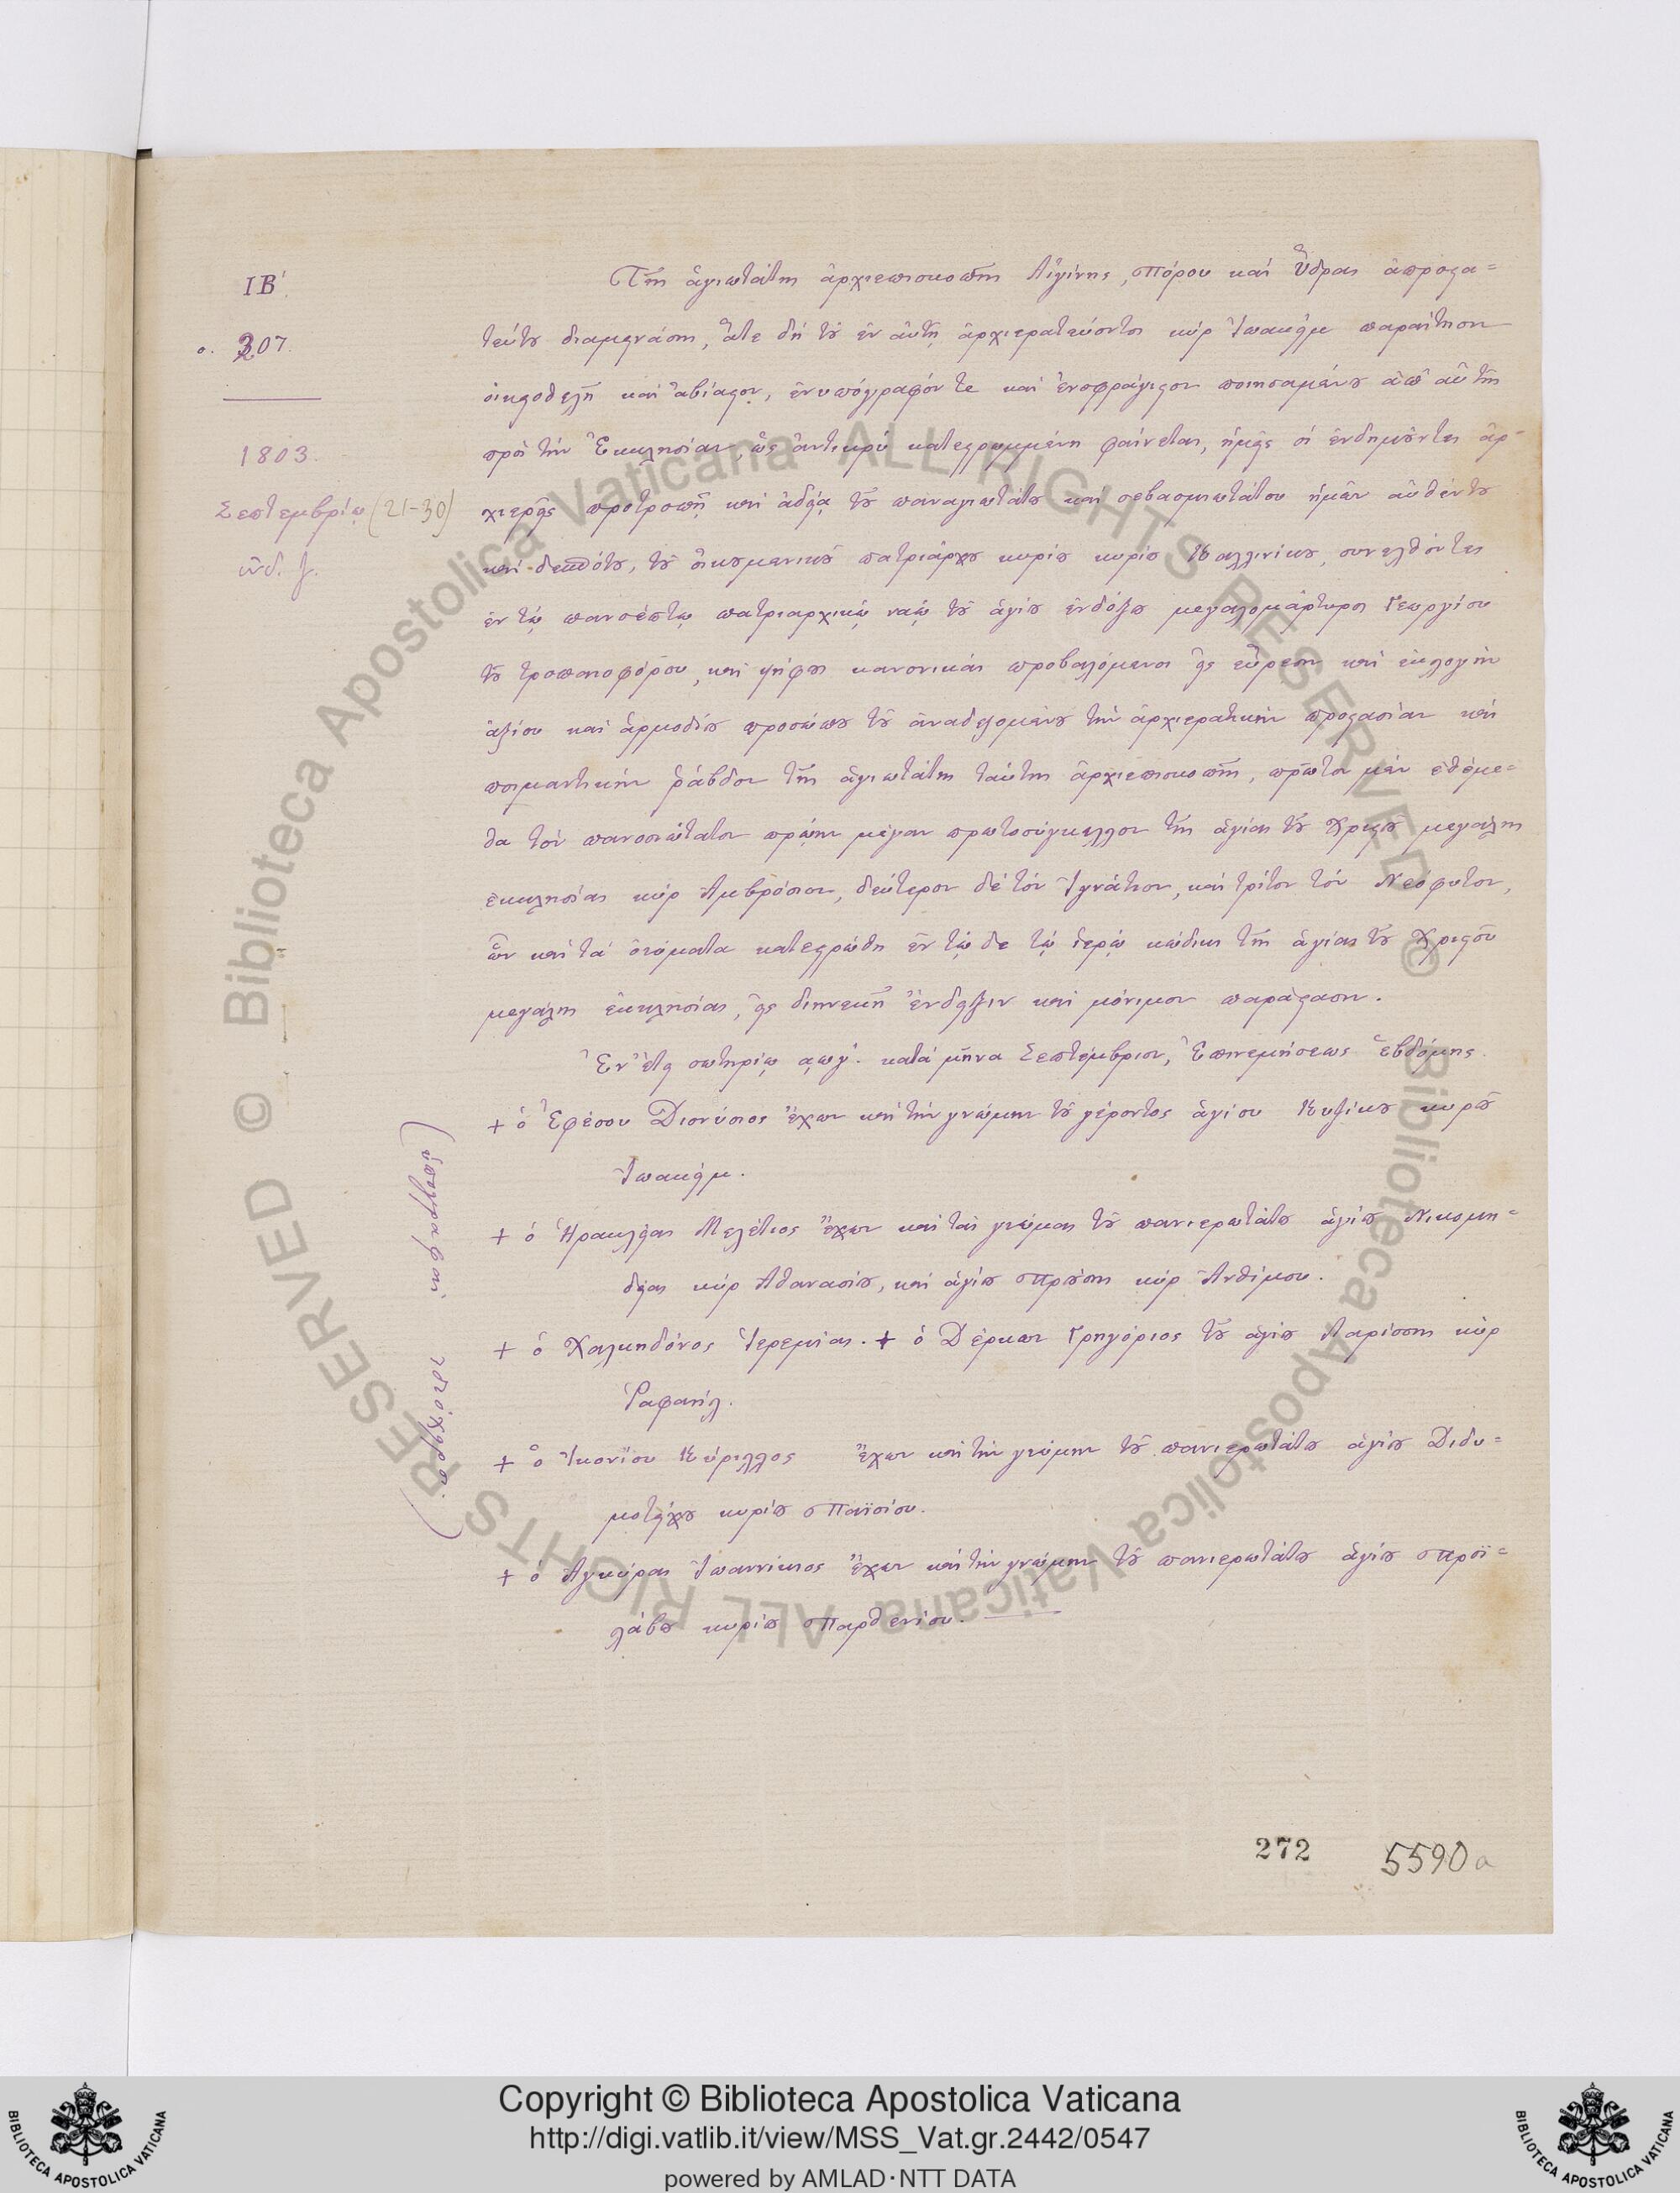 ΙΒ΄.
σ. 307.
1803.
Σεπτεμβρίῳ (21-30)
ἰνδ. ζ.
Τῆς ἁγιωτάτης ἀρχιεπισκοπῆς Αἰγίνης, Πόρου καὶ Ὕδρας ἀπροστα=
τεύτου διαμεινάσης, ἅτε δὴ τοῦ ἐν αὐτῇ ἀρχιερατεύοντος κὺρ Ἰωακεὶμ παραίτησιν
οἰκειοθελῆ καὶ ἀβίαστον, ἐνυπόγραφόν τε καὶ ἐνσφράγιστον ποιησαμένου ἀπ' αὐτῆς
πρὸς τὴν Ἐκκλησίαν, ὡς ἀντικρὺ κατεστρωμμένη φαίνεται, ἡμεῖς οἱ ἐνδημοῦντες ἀρ=
χιερεῖς προτροπῇ καὶ ἀδείᾳ τοῦ παναγιωτάτου καὶ σεβασμιωτάτου ἡμῶν αὐθέντου
καὶ δεσπότου, τοῦ οἰκουμενικοῦ πατριάρχου κυρίου κυρίου Καλλινίκου, συνελθόντες
ἐν τῷ πανσέπτῳ πατριαρχικῷ ναῷ τοῦ ἁγίου ἐνδόξου μεγαλομάρτυρος Γεωργίου
τοῦ τροπαιοφόρου, καὶ ψήφους κανονικὰς προβαλόμενοι εἰς εὕρεσιν καὶ ἐκλογὴν
ἀξίου καὶ ἁρμοδίου προσώπου τοῦ ἀναδεξομένου τὴν ἀρχιερατικὴν προστασίαν καὶ
ποιμαντικὴν ῥάβδον τῆς ἁγιωτάτης ταύτης ἀρχιεπισκοπῆς, πρῶτον μὲν ἐθέμε=
θα τὸν πανοσιώτατον πρώην μέγαν πρωτοσύγκελλον τῆς ἁγίας τοῦ Χριστοῦ μεγάλης
ἐκκλησίας κὺρ Ἀμβρόσιον, δεύτερον δὲ τὸν Ἰγνάτιον, καὶ τρίτον τὸν Νεόφυτον,
ὧν καὶ τὰ ὀνόματα κατεστρώθη ἐν τῷδε τῷ ἱερῷ κώδικι τῆς ἁγίας τοῦ Χριστοῦ
μεγάλης ἐκκλησίας, εἰς διηνεκῆ ἔνδειξιν καὶ μόνιμον παράστασιν.
Ἐν ἔτει σωτηρίῳ αωγ΄. κατὰ μῆνα Σεπτέμβριον, Ἐπινεμήσεως ἑβδόμης.
+ ὁ Ἐφέσου Διονύσιος ἔχων καὶ τὴν γνώμην τοῦ γέροντος ἁγίου Κυζίκου κυροῦ
Ἰωακείμ.
+ ὁ Ἡρακλείας Μελέτιος ἔχων καὶ τὰς γνώμας τοῦ πανιερωτάτου ἁγίου Νικομη=
δείας κὺρ Ἀθανασίου, καὶ ἁγίου Προύσης κὺρ Ἀνθίμου.
+ ὁ Χαλκηδόνος Ἱερεμίας. + ὁ Δέρκων Γρηγόριος τοῦ ἁγίου Λαρίσσης κὺρ
Ῥαφαήλ.
+ ὁ Ἰκονίου Κύριλλος ἔχων καὶ τὴν γνώμην τοῦ πανιερωτάτου ἁγίου Διδυ=
μοτείχου κυρίου Παϊσίου.
+ ὁ Ἀγκύρας Ἰωαννίκιος ἔχων καὶ τὴν γνώμην τοῦ πανιερωτάτου ἁγίου Προϊ=
λάβου κυρίου Παρθενίου.
272 5590a
Copyright © Biblioteca Apostolica Vaticana
http://digi.vatlib.it/view/MSS_Vat.gr.2442/0547
powered by AMLAD·NTT DATA